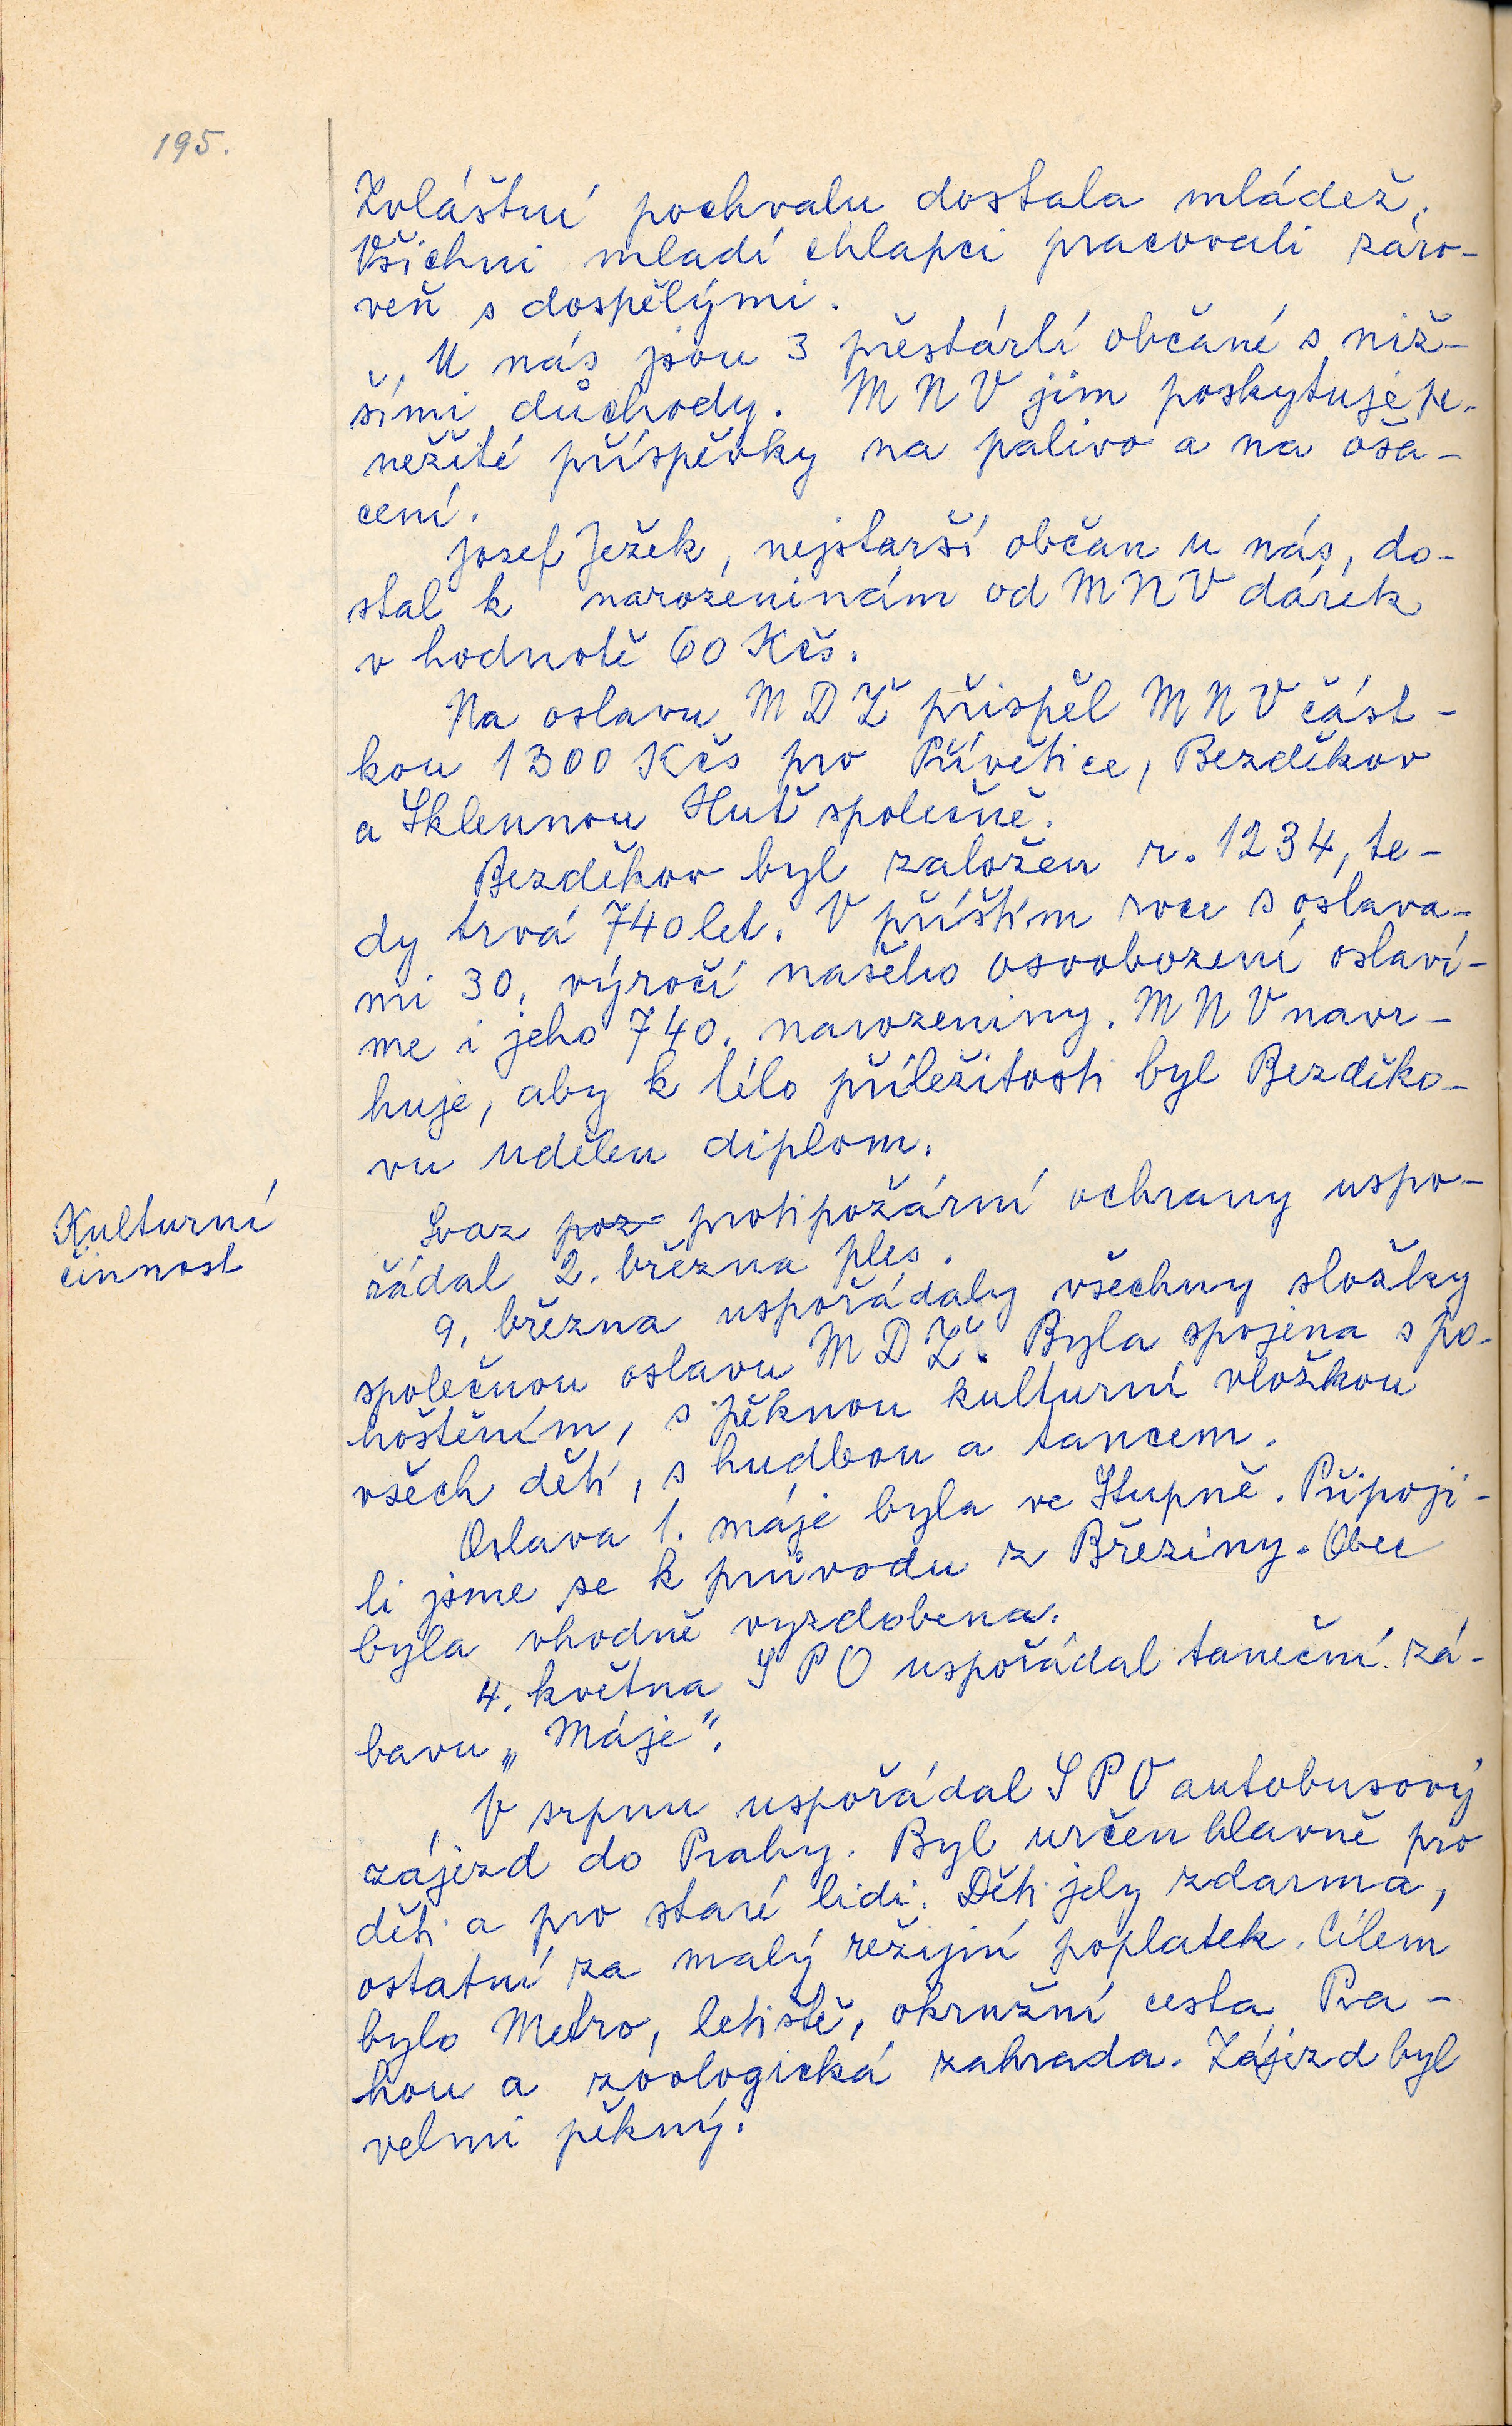 195.
Zvláštní pochvalu dostala mládež.
Všichni mladí chlapci pracovali záro-
veň s dospělými.
U nás jsou 3 přestárlí občané s niž-
šími důchody. MNV jim poskytuje pe-
nežité příspěvky na palivo a na oša-
cení.
Josef Ježek, nejstarší občan u nás, do-
stal k narozeninám od MNV dárek
v hodnotě 60 Kčs.
Na oslavu MDŽ přispěl MNV část-
kou 1300 Kčs pro Přívětice, Bezděkov
a Sklennou Huť společně.
Bezděkov byl založen r. 1234, te-
dy trvá 740 let. V příštím roce s oslava-
mi 30. výročí našeho osvobození oslaví-
me i jeho 740. narozeniny. MNV navr-
huje, aby k této příležitosti byl Bezděko-
vu udělen diplom.
Kulturní
činnost
Svaz poz- protipožární ochrany uspo-
řádal 2. března ples.
9. března uspořádaly všechny složky
společnou oslavu MDŽ. Byla spojena s po-
hoštěním, s pěknou kulturní vložkou
všech dětí, s hudbou a tancem.
Oslava 1. máje byla ve Stupně. Připoji-
li jsme se k průvodu z Březiny. Obec
byla vhodně vyzdobena.
4. května SPO uspořádal taneční zá-
bavu „Máje".
V srpnu uspořádal SPO autobusový
zájezd do Prahy. Byl určen hlavně pro
děti a pro staré lidi. Děti jely zdarma,
ostatní za malý režijní poplatek. Cílem
bylo Metro, letiště, okružní cesta Pra-
hou a zóologická zahrada. Zájezd byl
velmi pěkný.